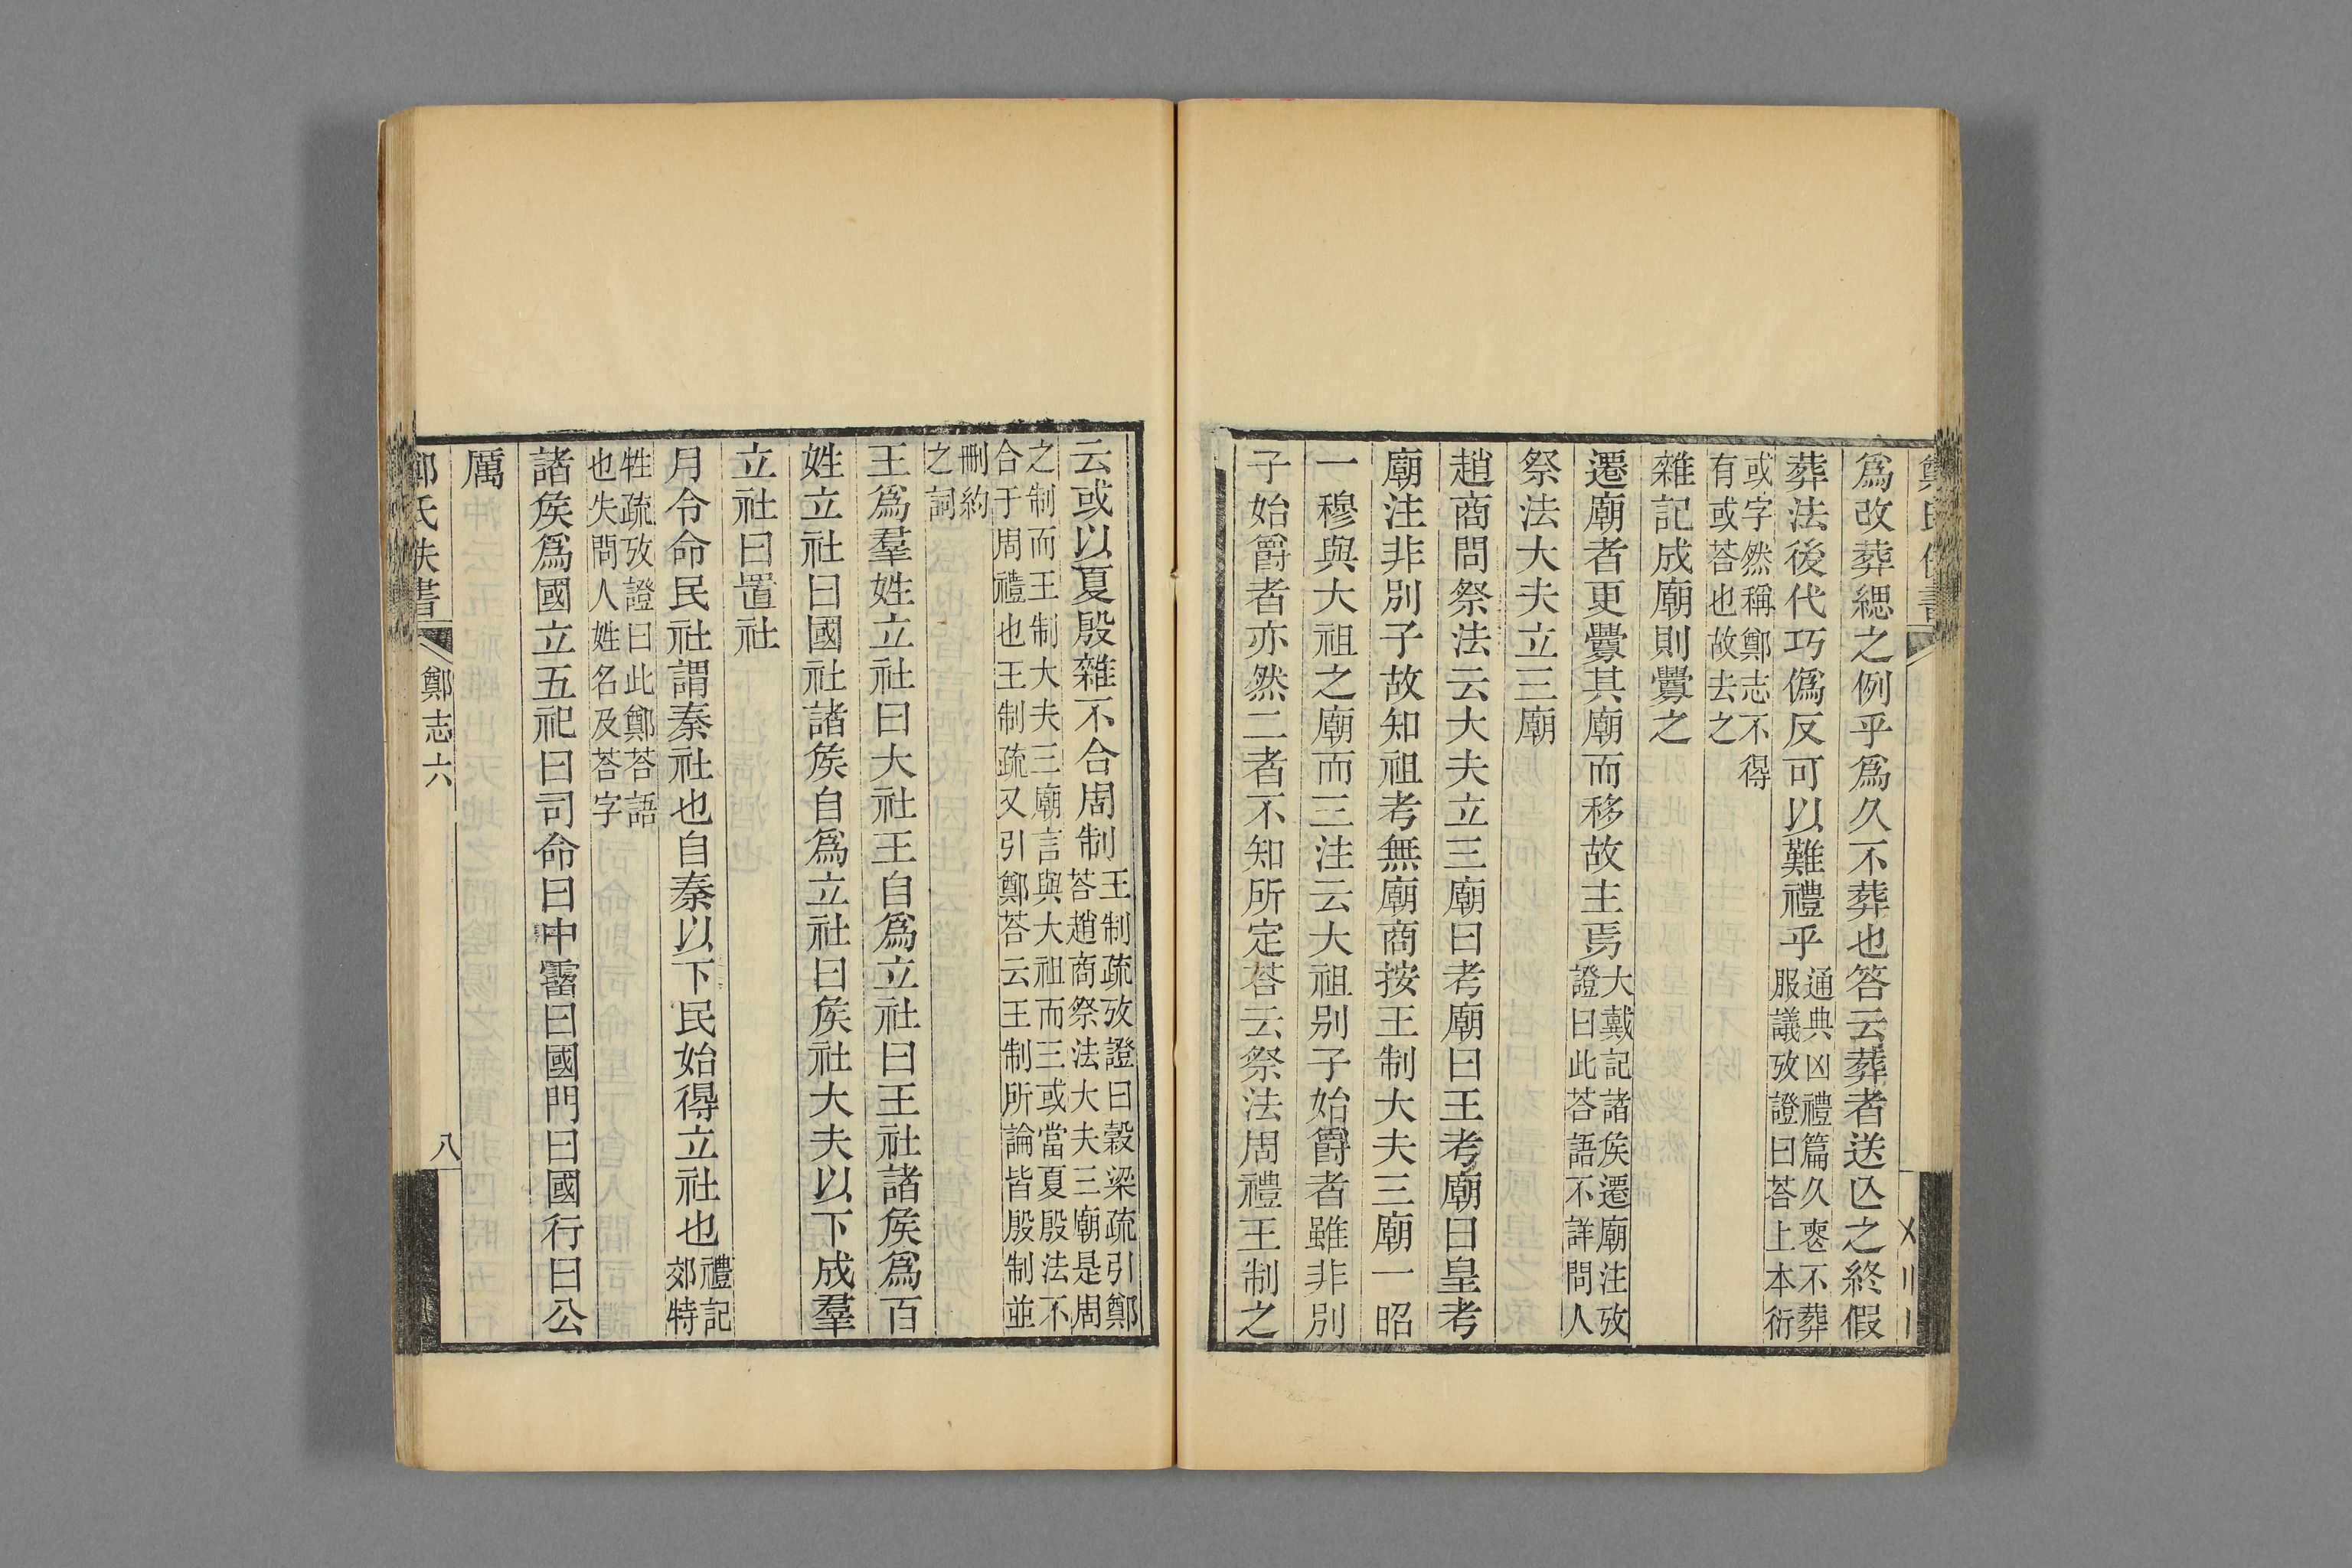 爲改葬緦之例乎爲久不葬也答云葬者送亾之終假
葬法後代巧僞反可以難禮乎通典凶禮篇久喪不葬
服議攷證曰荅上本衍
或字然稱鄭志不得
有或荅也故去之
雜記成廟則釁之
遷廟者更釁其廟而移故主焉大戴記諸矦遷廟注攷
證曰此荅語不詳問人
祭法大夫立三廟
趙商問祭法云大夫立三廟曰考廟曰王考廟曰皇考
廟注非別子故知祖考無廟商按王制大夫三廟一昭
一穆與大祖之廟而三注云大祖別子始爵者雖非別
子始爵者亦然二者不知所定荅云祭法周禮王制之
云或以夏殷雜不合周制王制疏攷證曰穀梁疏引鄭
荅趙商祭法大夫三廟是周
之制而王制大夫三廟言與大祖而三或當夏殷法不
合于周禮也王制疏又引鄭荅云王制所論皆殷制並
刪約
之詞
王爲羣姓立社曰大社王自爲立社曰王社諸矦爲百
姓立社曰國社諸矦自爲立社曰矦社大夫以下成羣
立社曰置社
月令命民社謂秦社也自秦以下民始得立社也禮記
郊特
牲疏攷證曰此鄭荅語
也失問人姓名及荅字
諸矦爲國立五祀曰司命曰中霤曰國門曰國行曰公
厲
鄭氏佚書
鄭志六
八